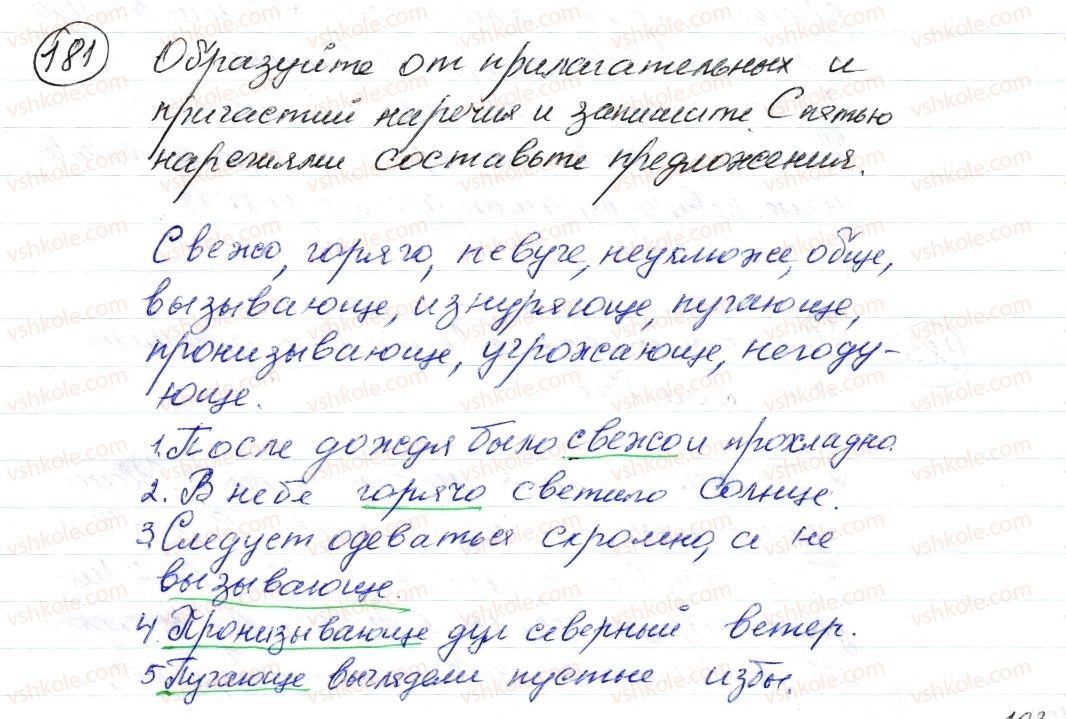 181 Образуйте от прилагательных и
причастий наречия и запишите. С пятью
наречиями составьте предложения.
Свежо, горячо, певуче, неуклюже, обще,
вызывающе, изнуряюще, пугающе,
пронизывающе, угрожающе, негоду-
юще.
1. После дождя было свежо и прохладно.
2. В небе горячо светило солнце.
3. Следует одеваться скромно, а не
вызывающе.
4. Пронизывающе дул северный ветер.
5. Пугающе выглядели пустые избы.